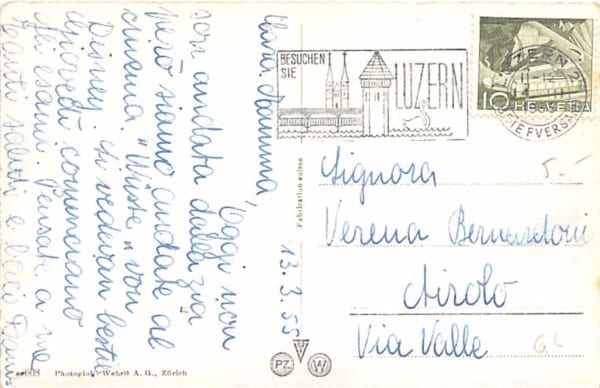 Cara Mamma,
Oggi non
son andata dalla zia
però siamo andate al
cinema. "Wüste" von
Disney. Si vedevan bestie
Giovedì cominciano
gli esami. Pensate a me
Tanti saluti e baci
12.3.55
BESUCHEN
SIE
LUZERN
10 HELVETIA
BRIEFVERSAND
Signora
Verena Bernasconi
Airolo
Via Valle
5.-
Fabrication suisse
PZ W
Photoglob-Wehrli A. G., Zürich